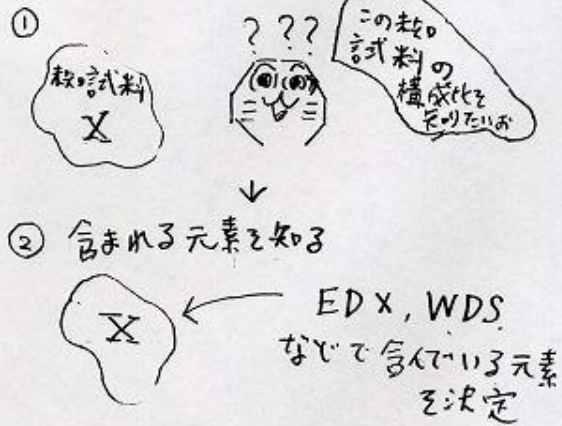 ①
???
この未知
試料の
構成比を
知りたいお
未知試料
X
②含まれる元素を知る
X
EDX, WDS
などで含んでいる元素
を決定